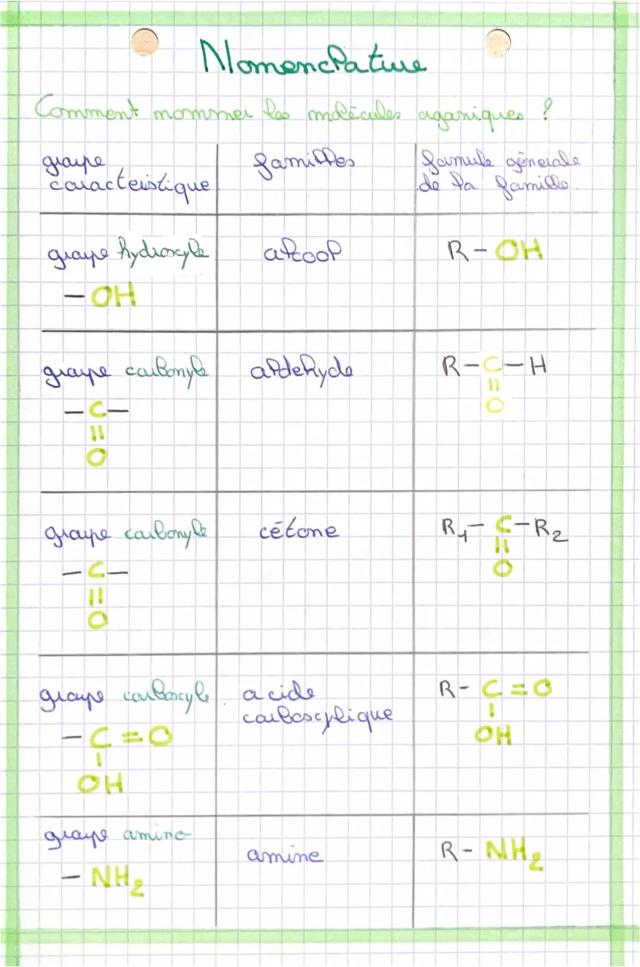 Nomenclature
Comment nommer les molécules organiques ?
groupe caracteristique
familles
formule génerale de la famille
groupe hydroxyle
- OH
alcool
R - OH
groupe carbonyle
- C -
||
O
aldehyde
R - C - H
||
O
groupe carbonyle
- C -
||
O
cétone
R1 - C - R2
||
O
groupe carboxyle
- C = O
|
OH
acide carboxylique
R - C = O
|
OH
groupe amine
- NH2
amine
R - NH2